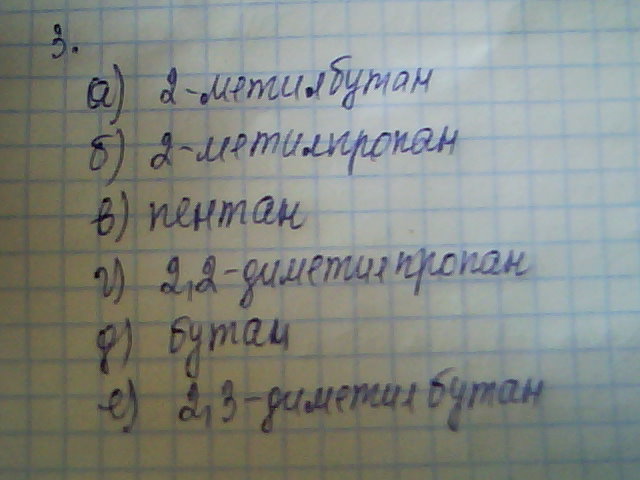 3.
а) 2-метилбутан
б) 2-метилпропан
в) пентан
г) 2,2-диметилпропан
д) бутан
е) 2,3-диметилбутан